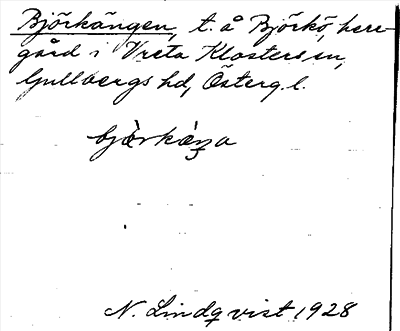 Björkängen, t. å Björkö, herr-
gård i Vreta Klosters sn,
Gullbergs hd, Österg. l.
N. Lindqvist 1928